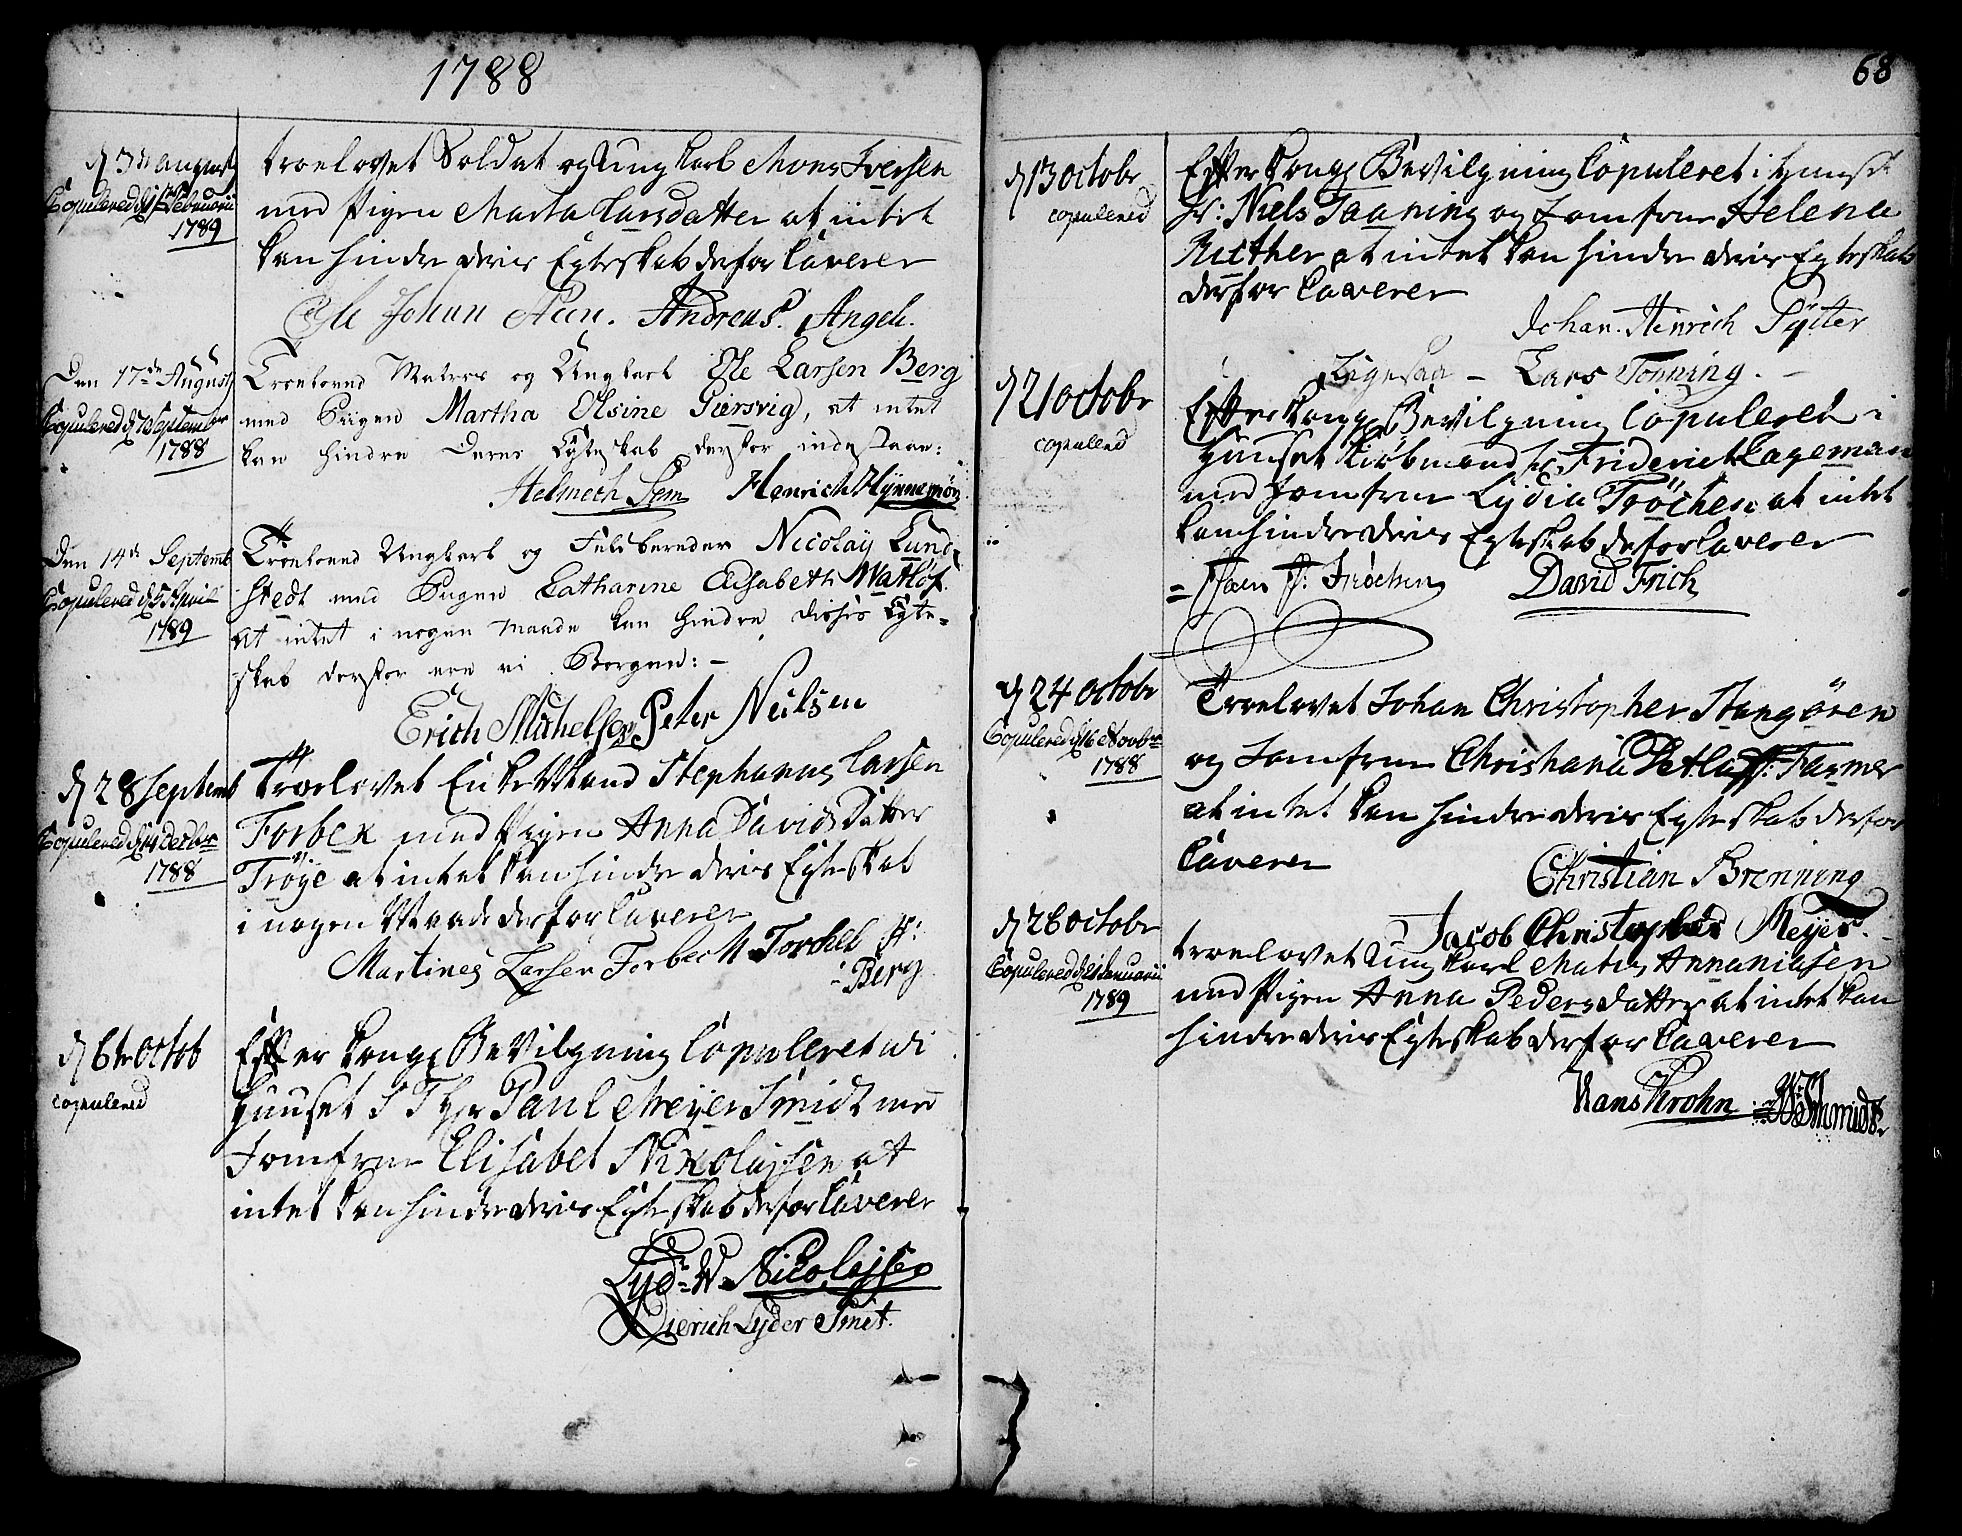 1788
d 3die august
Copulered d Februarii
1789
troelovet Soldat og Ung karl Mons Iversen
med Pigen Marta Larsdatter at intet
kan hindre deris Egteskab derfor Caverer
Ole Johan Andreas Angel.
Den 17de August
Copulered d 7 Septembr
1788
Troeloved Matros og Ungkarl Ole Larsen Berg
med Piigen Martha Olsine Giersvig, at intet
kan hindre Deres Egteskab derfor indestaar:
Helmech Sem Henrich Hynnemøn
Den 14de Septemb
Copulered d 5 April
1789
Troeloved Ungkarl og Feldbereder Nicolay Lund
stedt med Pigen Catharine Elisabeth Watløf
at intet i nogen maade kan hindre disses Egte-
skab derfor ere vi Borgen: -
Erich Michelsen Peter Neilsen
d 28 Septemb
Copulered d 14 Decbr
1788
Troelovet Enke Mand Stephanus Larsen
Forbek med Pigen Anna Davids Datter
Trøye at intet kan hindre deris Egteskab
i nogen Maade derfor Caverer
Martines Larsen Forbeck Torchel H:
: Berg
d 6te Octob
copulered
Efter kongl Bevilgning Copuleret udi
Huuset S T Hr Paul Meyer Smidt med
Jomfrue Elisabet Nikolaysen at
intet kan hindre deris Egteskab derfor Caverer
Lydr W Nicolaysen
Dierich Lyder Smit.
68
d 13 octobr
copulered
Efter kongl Bevilgning Copuleret i Huuset
Hr: Niels Taaning og Jomfrue Helena
Ruther at intet kan hindre deris Egteskab
derfor Caverer
Johan Hinrich Pÿtter
Ligesaa - Lars Tønning. -
d 21 octobr
copulered
Efter kongl Bevilgning Copuleret i
Huuset Kiøbmand Hr Friderich Hagemann
med Jomfrue Lydia Frøchen at intet
kan hindre deris Egteskab derfor Caverer
= Frøchen David Frich
d 24 octobr
Copulered d 16 Novbr
1788
Troelovet Johan Christopher Stangøren
og Jomfrue Christiana Detlaff: Farmer
at intet kan hindre deris Egteskab derfor
Caverer
Christian Brenning
Jacob Christopher Meyer.
d 26 octobr
Copulered d Januarii
1789
troelovet Ung karl Matis Annaniasen
med Pigen Anna Peders datter at intet kan
hindre deris Egteskab derfor Caverer
Hans Krohn Schmidt